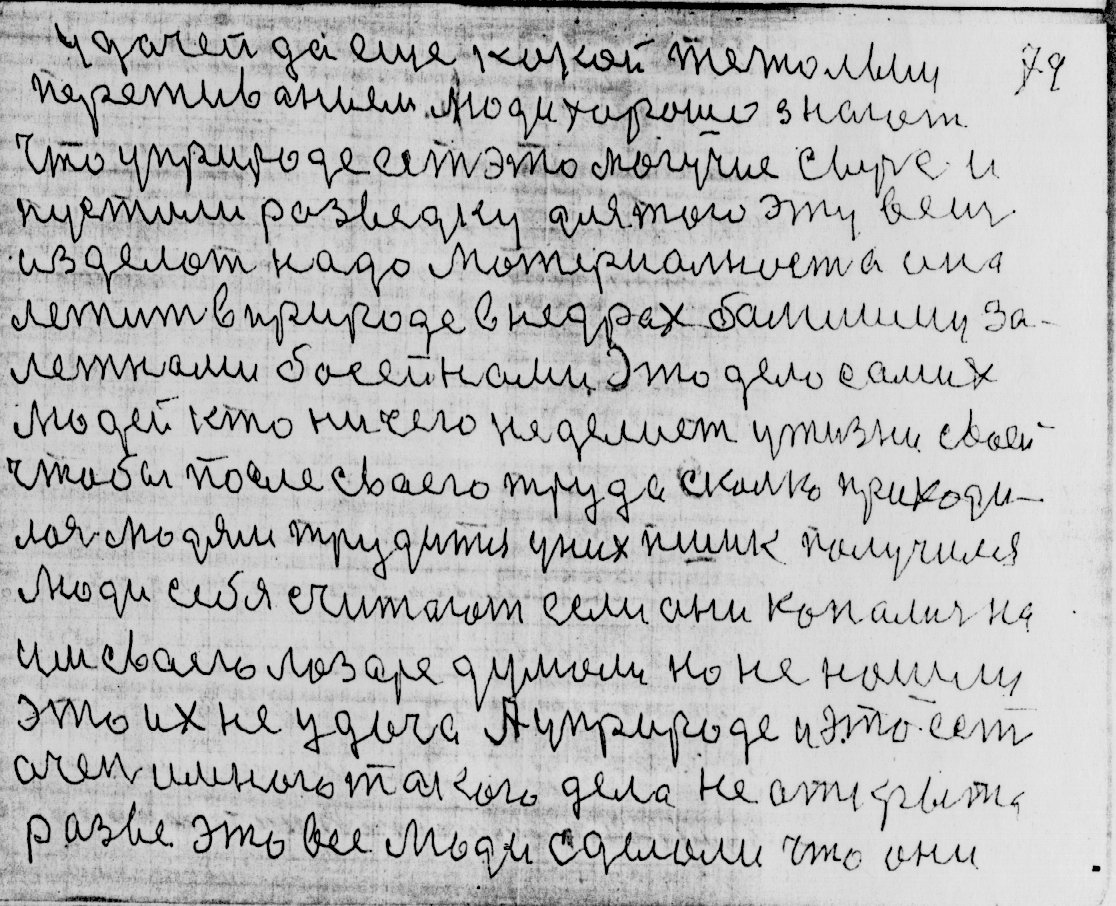 удачей да еще какой тежолыи 79
пережываниеми люди хорошо знают
что уприроде сетэто могучие сырье и
пустили разведку длятого эту вещ
изделат надо материалноста она
лежит в природе внедрах балшими за-
лежнами босейнами. Это дело самих
людей кто ничего неделает ужизни своей
чтобы после сваего труда сколко приходи-
лоя людям трудится у них пшик получился
люди себя считают если они копалис на
им сваего лазаре думоли но не нашли
это их не удача А уприроде и это сет
очен имного такого дела не открыта
разве это все люди сделоли что они